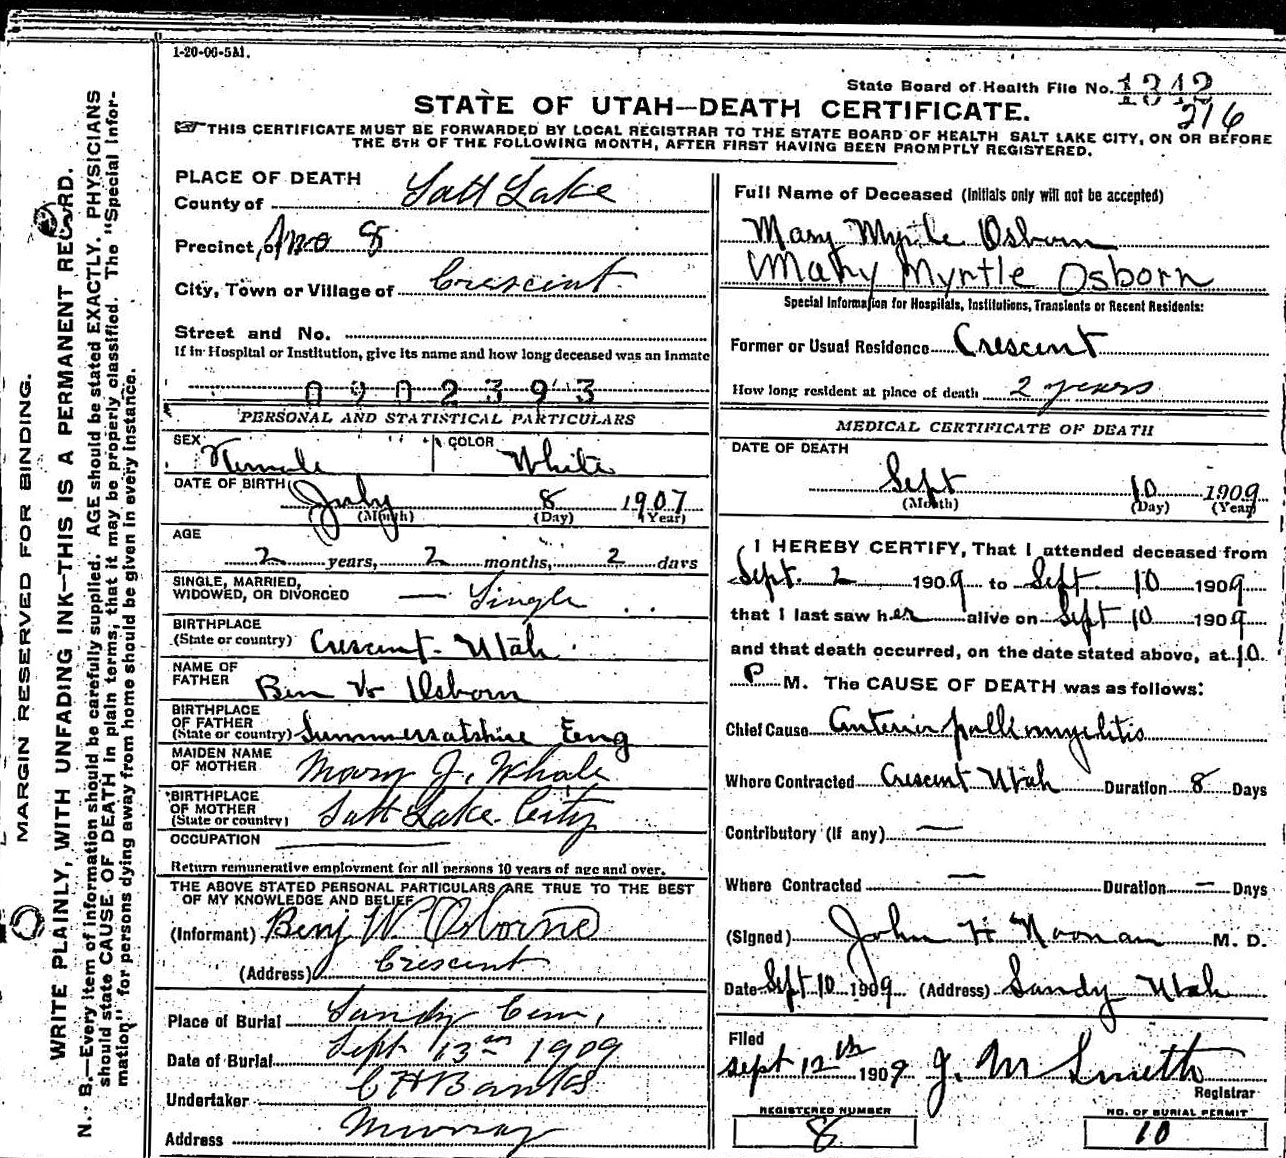 1-20-06-5M.
State Board of Health File No. 1342
216
STATE OF UTAH—DEATH CERTIFICATE.
☞THIS CERTIFICATE MUST BE FORWARDED BY LOCAL REGISTRAR TO THE STATE BOARD OF HEALTH SALT LAKE CITY, ON OR BEFORE
THE 5TH OF THE FOLLOWING MONTH, AFTER FIRST HAVING BEEN PROMPTLY REGISTERED.
MARGIN RESERVED FOR BINDING.
WRITE PLAINLY, WITH UNFADING INK—THIS IS A PERMANENT RECORD.
N. B.—Every item of information should be carefully supplied. AGE should be stated EXACTLY. PHYSICIANS
should state CAUSE OF DEATH in plain terms, that it may be properly classified. The "Special Infor-
mation" for persons dying away from home should be given in every instance.
PLACE OF DEATH
County of Salt Lake
Precinct of No 8
City, Town or Village of Crescent
Street and No.
If in Hospital or Institution, give its name and how long deceased was an Inmate
0902393
PERSONAL AND STATISTICAL PARTICULARS
SEX Female COLOR White
DATE OF BIRTH July 8 1907
(Month) (Day) (Year)
AGE
2 years, 2 months, 2 days
SINGLE, MARRIED,
WIDOWED, OR DIVORCED — Single
BIRTHPLACE
(State or country) Crescent Utah
NAME OF
FATHER Ben W Osborn
BIRTHPLACE
OF FATHER
(State or country) Summersatshire Eng
MAIDEN NAME
OF MOTHER Mary J. Whale
BIRTHPLACE
OF MOTHER
(State or country) Salt Lake City
OCCUPATION
Return remunerative employment for all persons 10 years of age and over.
THE ABOVE STATED PERSONAL PARTICULARS ARE TRUE TO THE BEST
OF MY KNOWLEDGE AND BELIEF
(Informant) Benj W. Osborne
(Address) Crescent
Place of Burial Sandy Cem.
Date of Burial Sept 13th 1909
Undertaker C H Banks
Address Murray
Full Name of Deceased (Initials only will not be accepted)
Mary Myrtle Osborn
Mary Myrtle Osborn
Special Information for Hospitals, Institutions, Transients or Recent Residents:
Former or Usual Residence Crescent
How long resident at place of death 2 years
MEDICAL CERTIFICATE OF DEATH
DATE OF DEATH
Sept 10 1909
(Month) (Day) (Year)
I HEREBY CERTIFY, That I attended deceased from
Sept. 2 1909 to Sept 10 1909
that I last saw her alive on Sept 10 1909
and that death occurred, on the date stated above, at 10
P M. The CAUSE OF DEATH was as follows:
Chief Cause Anterior poliomyelitis
Where Contracted Crescent Utah Duration 8 Days
Contributory (If any) —
Where Contracted — Duration — Days
(Signed) John H Noonan M. D.
Date Sept 10 1909 (Address) Sandy Utah
Filed
Sept 12th 1909 J. M Smith
Registrar
REGISTERED NUMBER
8
NO. OF BURIAL PERMIT
10